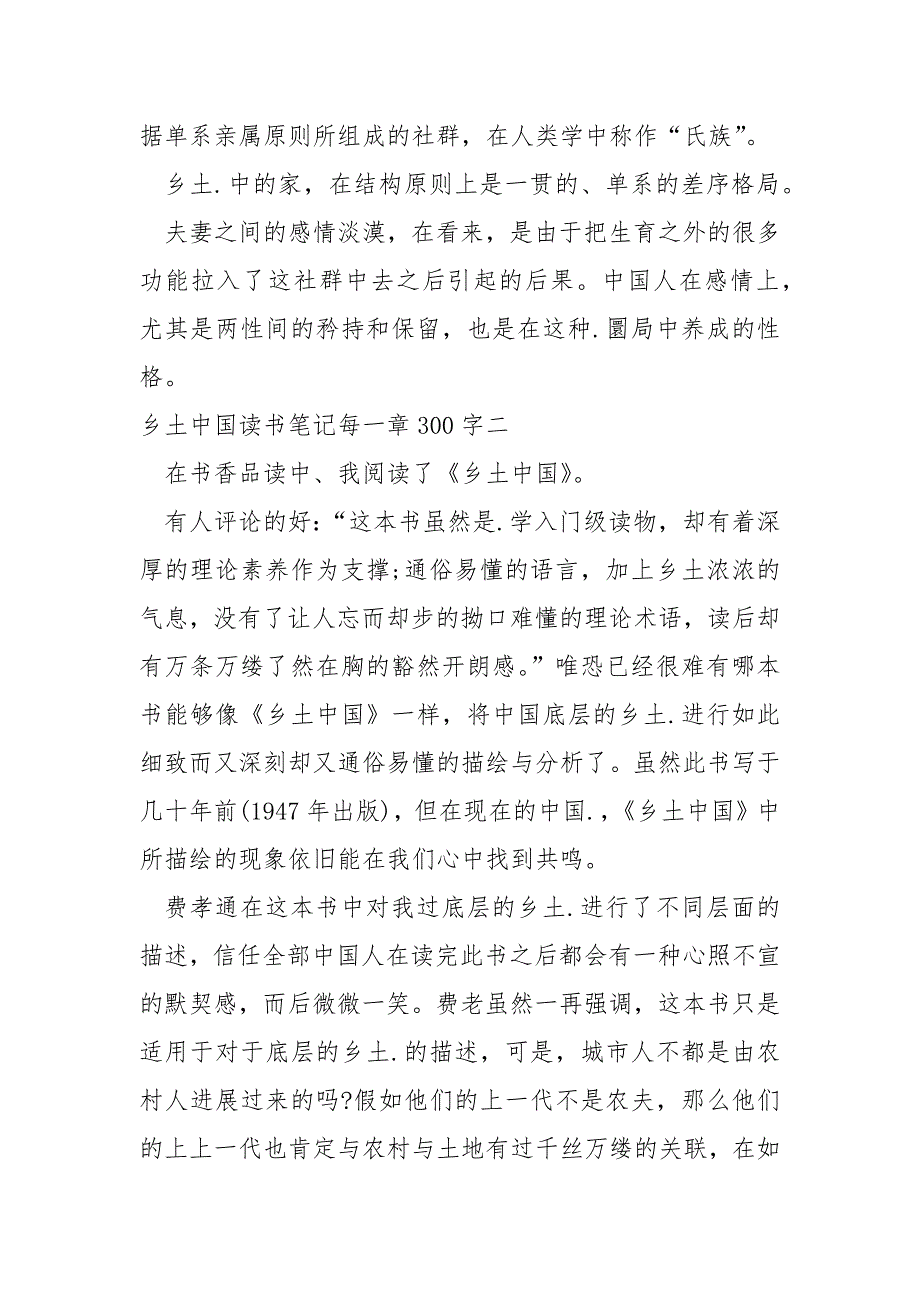 据单系亲属原则所组成的社群，在人类学中称作“氏族”。
乡土.中的家，在结构原则上是一贯的、单系的差序格局。
夫妻之间的感情淡漠，在看来，是由于把生育之外的很多
功能拉入了这社群中去之后引起的后果。中国人在感情上，
尤其是两性间的矜持和保留，也是在这种.圜局中养成的性
格。
乡土中国读书笔记每一章 300 字二
在书香品读中、我阅读了《乡土中国》。
有人评论的好：“这本书虽然是.学入门级读物，却有着深
厚的理论素养作为支撑;通俗易懂的语言，加上乡土浓浓的
气息，没有了让人忘而却步的拗口难懂的理论术语，读后却
有万条万缕了然在胸的豁然开朗感。”唯恐已经很难有哪本
书能够像《乡土中国》一样，将中国底层的乡土.进行如此
细致而又深刻却又通俗易懂的描绘与分析了。虽然此书写于
几十年前(1947 年出版)，但在现在的中国.，《乡土中国》中
所描绘的现象依旧能在我们心中找到共鸣。
费孝通在这本书中对我过底层的乡土.进行了不同层面的
描述，信任全部中国人在读完此书之后都会有一种心照不宣
的默契感，而后微微一笑。费老虽然一再强调，这本书只是
适用于对于底层的乡土.的描述，可是，城市人不都是由农
村人进展过来的吗?假如他们的上一代不是农夫，那么他们
的上上一代也肯定与农村与土地有过千丝万缕的关联，在如